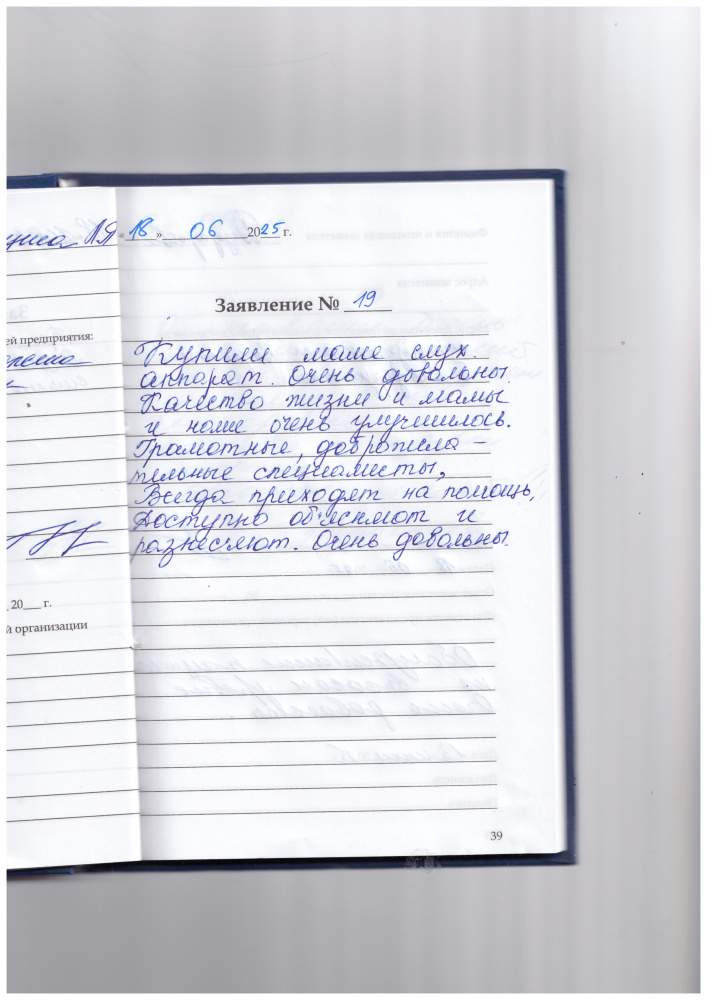 «18» 06 2025 г.
Заявление № 19
ей предприятия:
Купили маме слух.
аппарат. Очень довольны.
Качество жизни и мамы
и наше очень улучшилось.
Грамотные, доброжела-
тельные специалисты,
Всегда приходят на помощь,
Доступно объясняют и
разъесняют. Очень довольны.
20___ г.
й организации
39